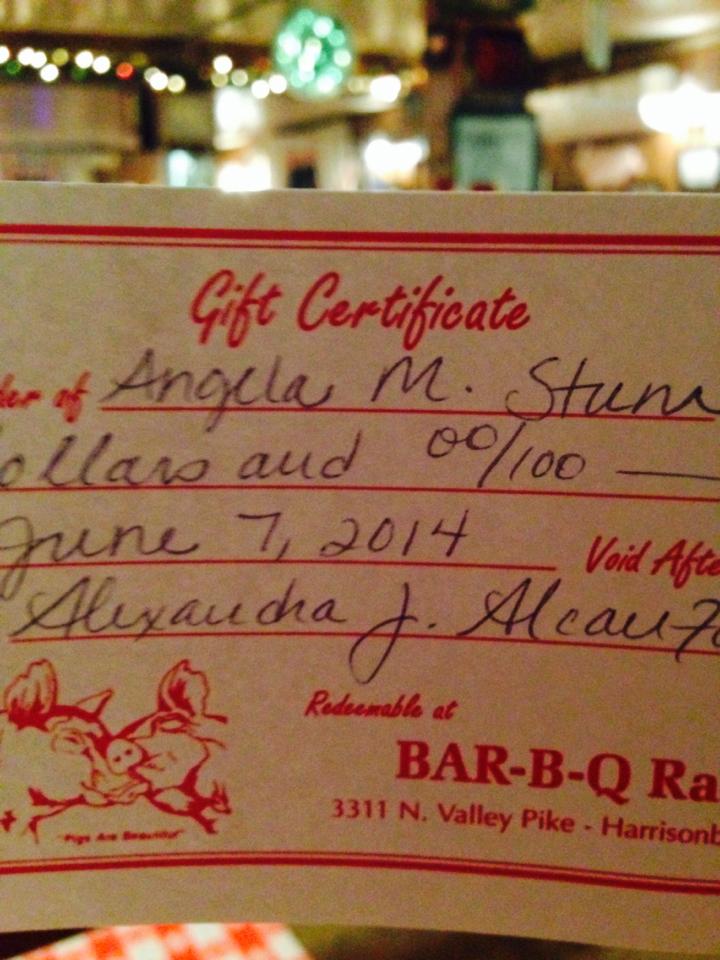 Gift Certificate
der of Angela M. Stum
ollars and 00/100
June 7, 2014 Void Afte
Alexandra J. Alcanta
"Pigs Are Beautiful"
Redeemable at
BAR-B-Q Ra
3311 N. Valley Pike - Harrisonb